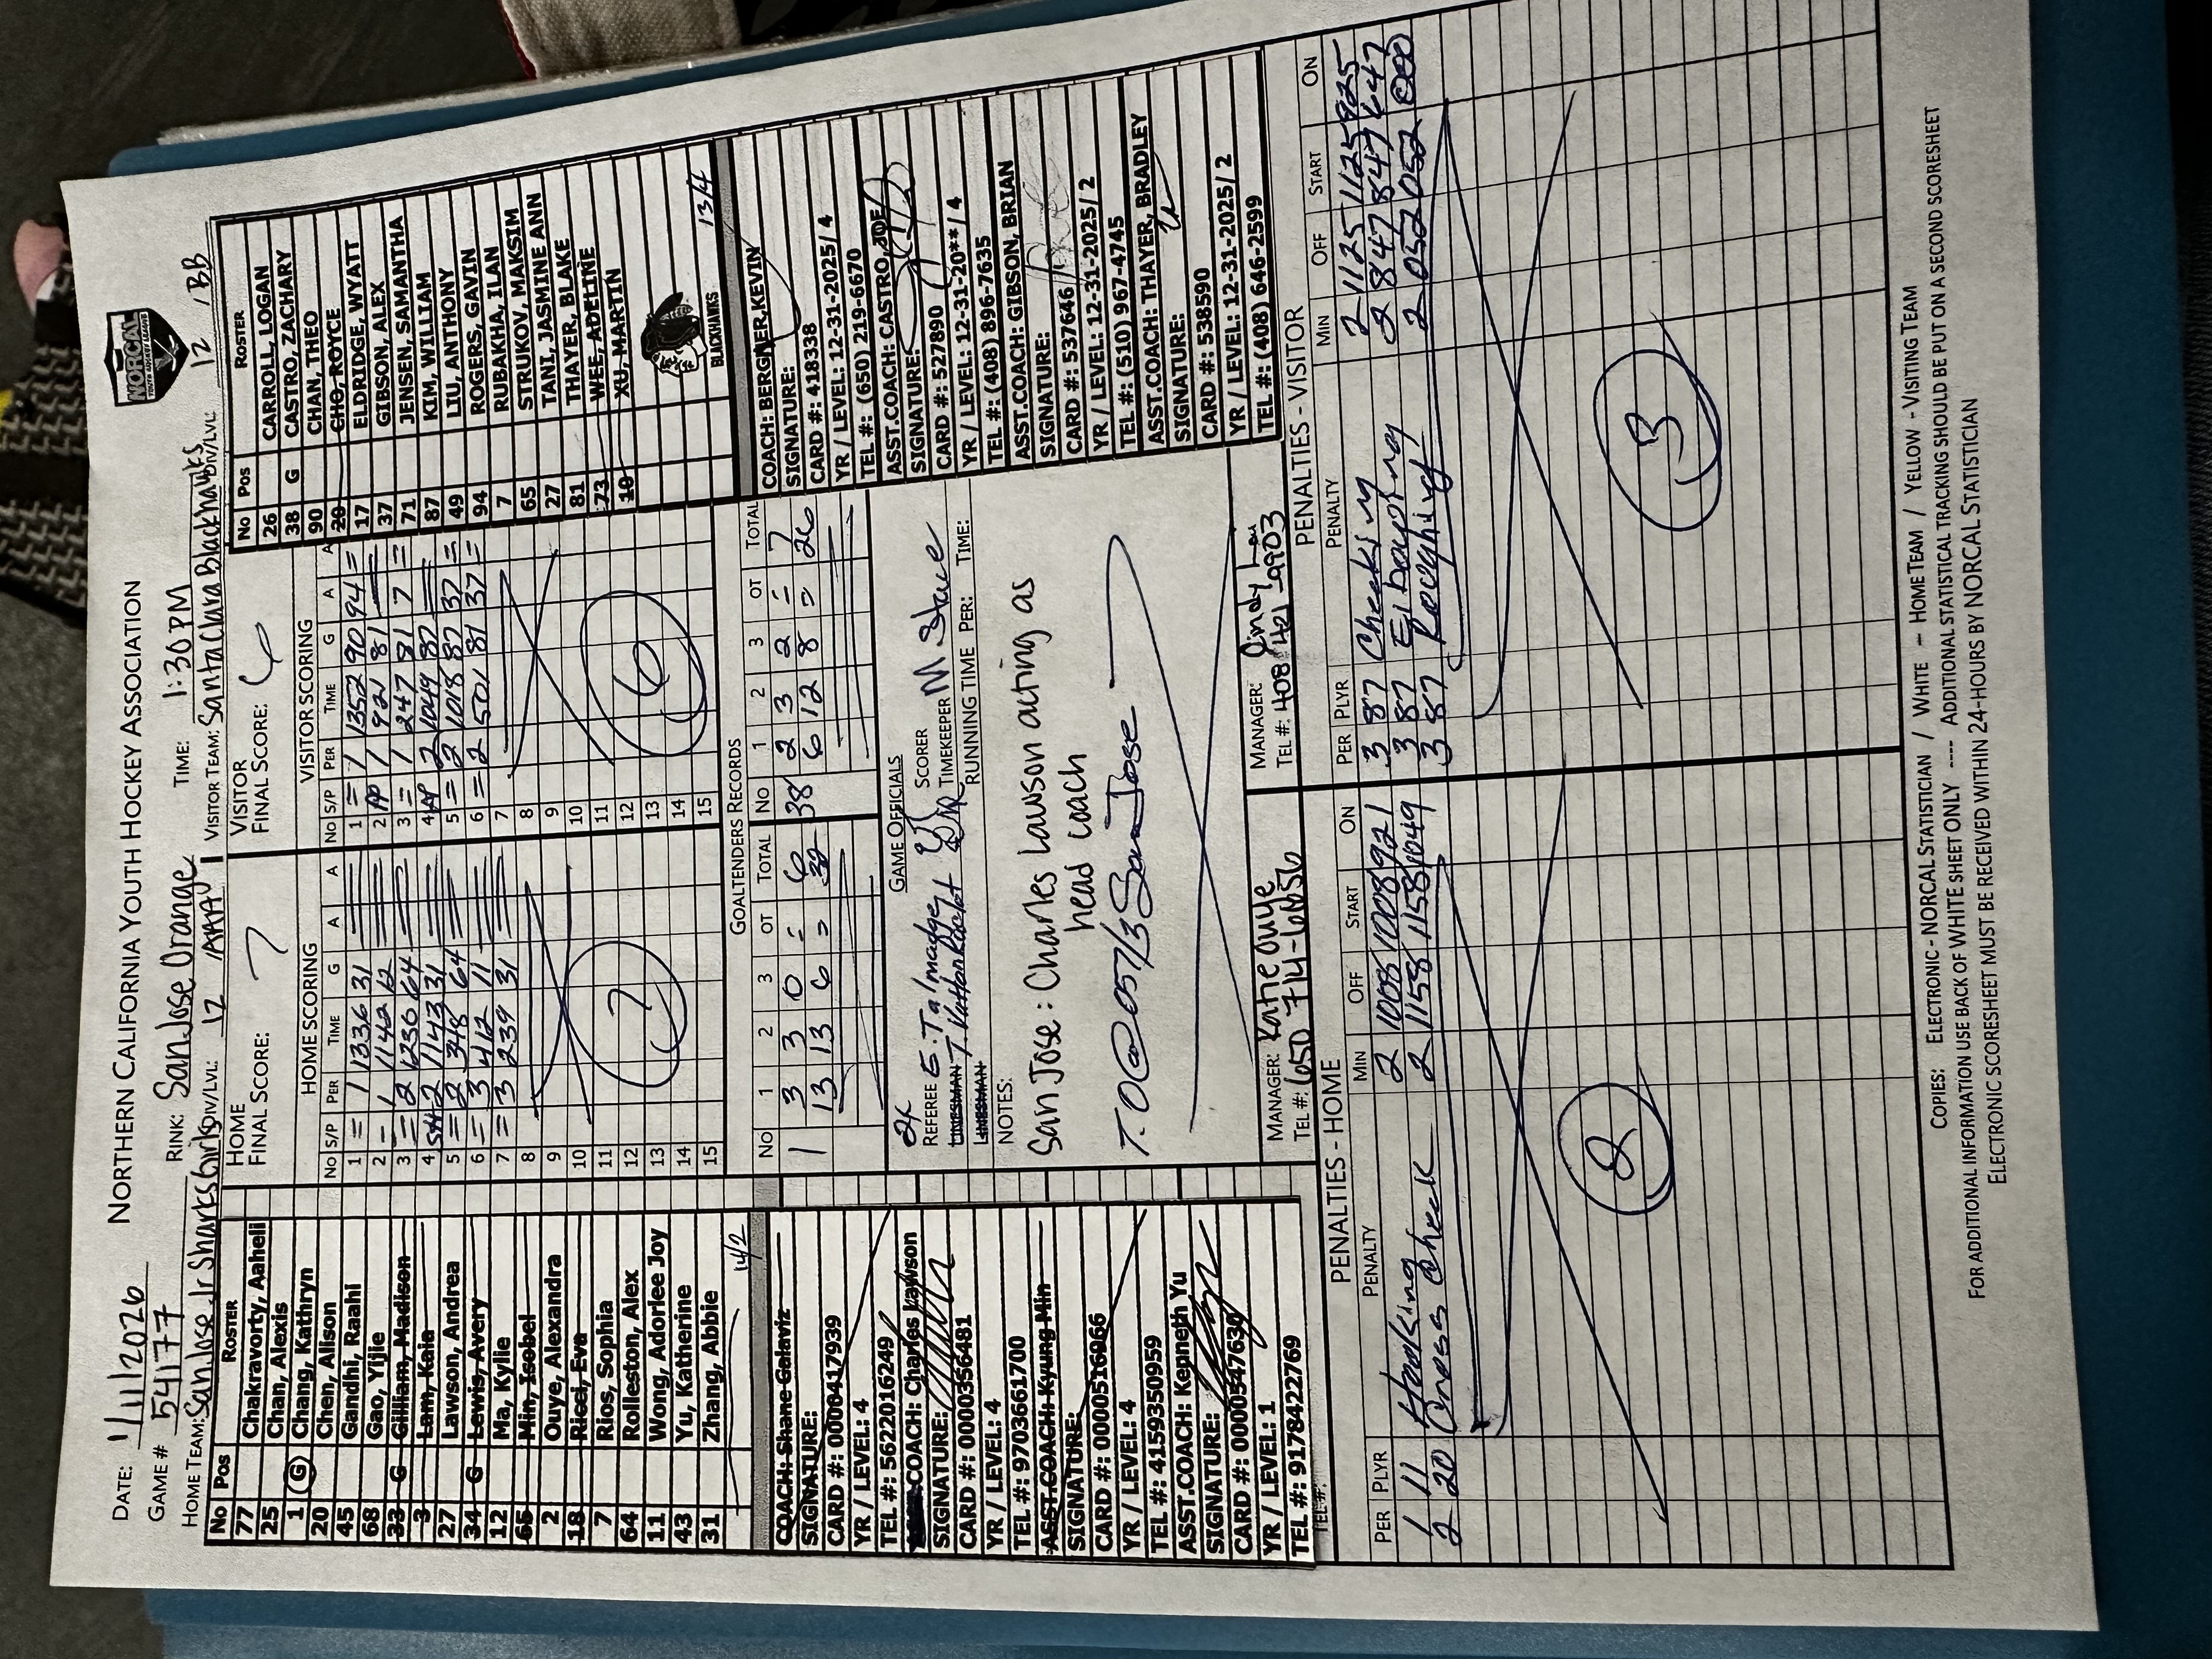 NORTHERN CALIFORNIA YOUTH HOCKEY ASSOCIATION
NORCAL
YOUTH HOCKEY LEAGUE
DATE: 1/11/2026
GAME # 54177
RINK: San Jose Orange
TIME: 1:30 PM
HOME TEAM: San Jose Jr Sharks Girls DIV/LVL: 12 / AAA
VISITOR TEAM: Santa Clara Blackhawks DIV/LVL: 12 / BB
No Pos ROSTER
77 Chakravorty, Aaheli
25 Chan, Alexis
1 G Chang, Kathryn
20 Chen, Alison
45 Gandhi, Raahi
68 Gao, Yijie
33 G Gilliam, Madison
3 Lam, Kaie
27 Lawson, Andrea
34 G Lewis, Avery
12 Ma, Kylie
65 Min, Isobel
2 Ouye, Alexandra
18 Ricci, Eva
7 Rios, Sophia
64 Rolleston, Alex
11 Wong, Adorlee Joy
43 Yu, Katherine
31 Zhang, Abbie
14/2
COACH: Shane Galaviz
SIGNATURE:
CARD #: 0000417939
YR / LEVEL: 4
TEL #: 5622016249
COACH: Charles Lawson
SIGNATURE:
CARD #: 0000356481
YR / LEVEL: 4
TEL #: 9703661700
ASST.COACH: Kyung Min
SIGNATURE:
CARD #: 0000516966
YR / LEVEL: 4
TEL #: 4159350959
ASST.COACH: Kenneth Yu
SIGNATURE:
CARD #: 0000547630
YR / LEVEL: 1
TEL #: 9178422769
TEL #:
HOME
FINAL SCORE: 7
HOME SCORING
No S/P PER TIME G A A
1 = 1 1336 31
2 = 1 1142 12
3 = 2 1236 64
4 SH 2 1143 31
5 = 2 348 64
6 = 3 412 11
7 = 3 239 31
8
9
10
11
12
13
14
15
7
VISITOR
FINAL SCORE: 6
VISITOR SCORING
No S/P PER TIME G A A
1 = 1 1352 90 94 =
2 PP 1 921 81
3 = 1 247 81 7 =
4 PP 2 1049 87
5 = 2 1018 87 37 =
6 = 2 501 81 37 =
7
8
9
10
11
12
13
14
15
6
No Pos ROSTER
26 CARROLL, LOGAN
38 G CASTRO, ZACHARY
90 CHAN, THEO
20 CHO, ROYCE
17 ELDRIDGE, WYATT
37 GIBSON, ALEX
71 JENSEN, SAMANTHA
87 KIM, WILLIAM
49 LIU, ANTHONY
94 ROGERS, GAVIN
7 RUBAKHA, ILAN
65 STRUKOV, MAKSIM
27 TANI, JASMINE ANN
81 THAYER, BLAKE
73 WEE, ADELINE
10 XU, MARTIN
BLACKHAWKS
13/4
COACH: BERGNER, KEVIN
SIGNATURE:
CARD #: 418338
YR / LEVEL: 12-31-2025/ 4
TEL #: (650) 219-6670
ASST.COACH: CASTRO, JOE
SIGNATURE:
CARD #: 527890
YR / LEVEL: 12-31-20** / 4
TEL #: (408) 896-7635
ASST.COACH: GIBSON, BRIAN
SIGNATURE:
CARD #: 537646
YR / LEVEL: 12-31-2025/ 2
TEL #: (510) 967-4745
ASST.COACH: THAYER, BRADLEY
SIGNATURE:
CARD #: 538590
YR / LEVEL: 12-31-2025/ 2
TEL #: (408) 646-2599
GOALTENDERS RECORDS
NO 1 2 3 OT TOTAL
1 3 3 0 = 6
13 13 6 = 32
NO 1 2 3 OT TOTAL
38 2 3 2 = 7
6 12 8 = 26
GAME OFFICIALS
REFEREE E. Talmadge
LINESMAN
LINESMAN
SCORER
TIMEKEEPER M. Stave
RUNNING TIME PER: TIME:
NOTES:
San Jose: Charles Lawson acting as
head coach
T.O@057/3 San Jose
MANAGER: Katie Ouye
TEL #: 650 714-6656
MANAGER: Cindy
TEL #: 408-421-9903
PENALTIES - HOME
PER PLYR PENALTY MIN OFF START ON
1 11 Hooking 2 1008 1008 921
2 20 Cross Check 2 1158 1158 1049
2
PENALTIES - VISITOR
PER PLYR PENALTY MIN OFF START ON
3 87 Checking 2 1125 1125 925
3 87 Elbowing 2 847 847 647
3 87 Roughing 2 052 052 000
3
COPIES: ELECTRONIC - NORCAL STATISTICIAN / WHITE - HOME TEAM / YELLOW - VISITING TEAM
FOR ADDITIONAL INFORMATION USE BACK OF WHITE SHEET ONLY ---- ADDITIONAL STATISTICAL TRACKING SHOULD BE PUT ON A SECOND SCORESHEET
ELECTRONIC SCORESHEET MUST BE RECEIVED WITHIN 24-HOURS BY NORCAL STATISTICIAN